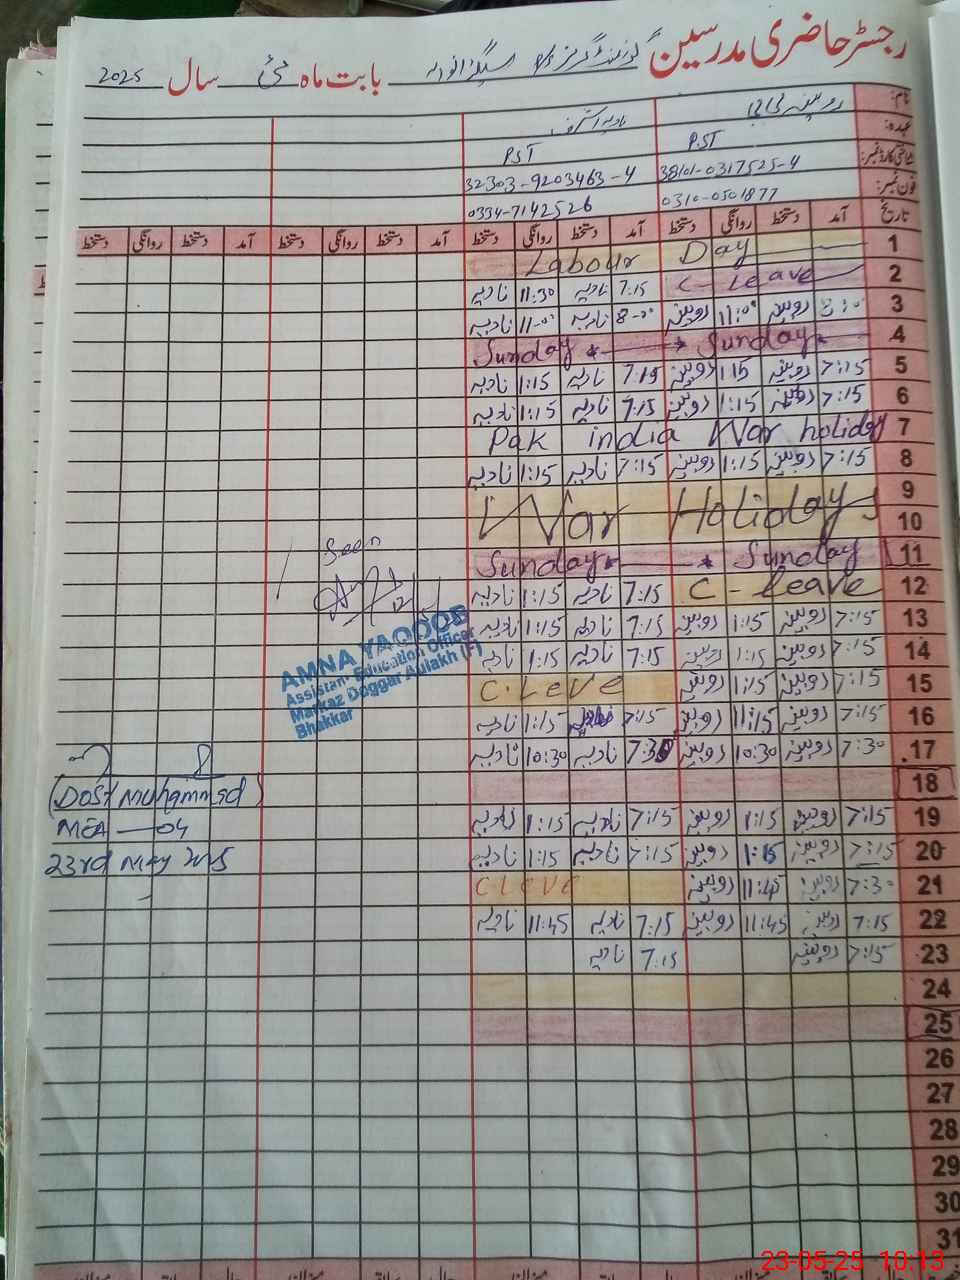 رجسٹر حاضری مدرسین گورنمنٹ گرلز بابت ماہ مئی سال 2025
نام:
عہدہ: PST PST
شناختی کارڈ نمبر: 38101-0317525-4 32303-9203463-4
فون نمبر: 0310-0501877 0334-7142526
تاریخ آمد دستخط روانگی دستخط آمد دستخط روانگی دستخط آمد دستخط روانگی دستخط آمد دستخط روانگی دستخط
1 Labour Day
2 C-Leave 7:15 نادیہ 11:30 نادیہ
3 روبینہ 11:00 روبینہ 8-00 نادیہ 11-00 نادیہ
4 Sunday Sunday
5 7:15 روبینہ 1:15 روبینہ 7:15 نادیہ 1:15 نادیہ
6 7:15 روبینہ 1:15 روبینہ 7:15 نادیہ 1:15 نادیہ
7 Pak india War holiday
8 7:15 روبینہ 1:15 روبینہ 7:15 نادیہ 1:15 نادیہ
9
War Holiday
10
11 Sunday Sunday
12 C-Leave 7:15 نادیہ 1:15 نادیہ
13 7:15 روبینہ 1:15 روبینہ 7:15 نادیہ 1:15 نادیہ
14 7:15 روبینہ 1:15 روبینہ 7:15 نادیہ 1:15 نادیہ
15 7:15 روبینہ 1:15 روبینہ C.LeVe
16 7:15 روبینہ 11:15 روبینہ 7:15 نادیہ 1:15 نادیہ
17 7:30 روبینہ 10:30 روبینہ 7:30 نادیہ 10:30 نادیہ
18
19 7:15 روبینہ 1:15 روبینہ 7:15 نادیہ 1:15 نادیہ
20 7:15 روبینہ 1:15 روبینہ 7:15 نادیہ 1:15 نادیہ
21 7:30 روبینہ 11:45 روبینہ C LeVe
22 7:15 روبینہ 11:45 روبینہ 7:15 نادیہ 11:45 نادیہ
23 7:15 روبینہ 7:15 نادیہ
24
25
26
27
28
29
30
31
Seen
AMNA YAQOOB
Assistant Education Officer
Markaz Doggar Aulakh (F)
Bhakkar
(Dost Muhammad)
MEA — 04
23rd May 2025
23-05-25 10:13